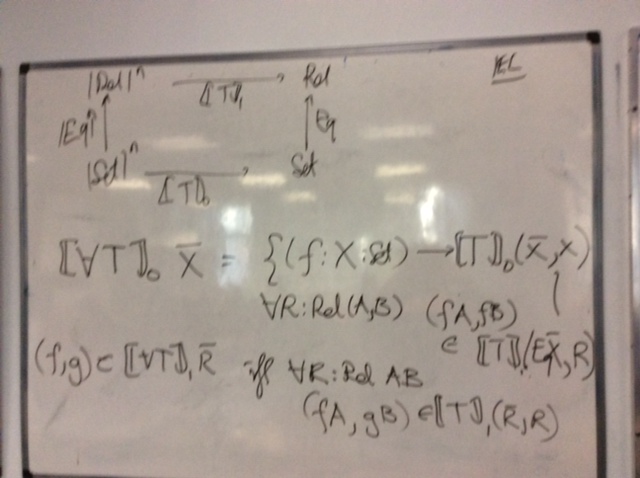 |Rel|ⁿ ⟶ Rel IEL
⟦T⟧₁
|Eq|ⁿ ↑ ↑ Eq
|Set|ⁿ ⟶ Set
⟦T⟧₀
⟦∀T⟧₀ X̄ = {(f : X : Set) ⟶ ⟦T⟧₀(X̄, X) |
∀R : Rel(A,B) (fA, fB)
∈ ⟦T⟧₁(Eq X̄, R)
(f,g) ∈ ⟦∀T⟧₁ R̄ iff ∀R : Rel AB
(fA, gB) ∈ ⟦T⟧₁(R̄, R)